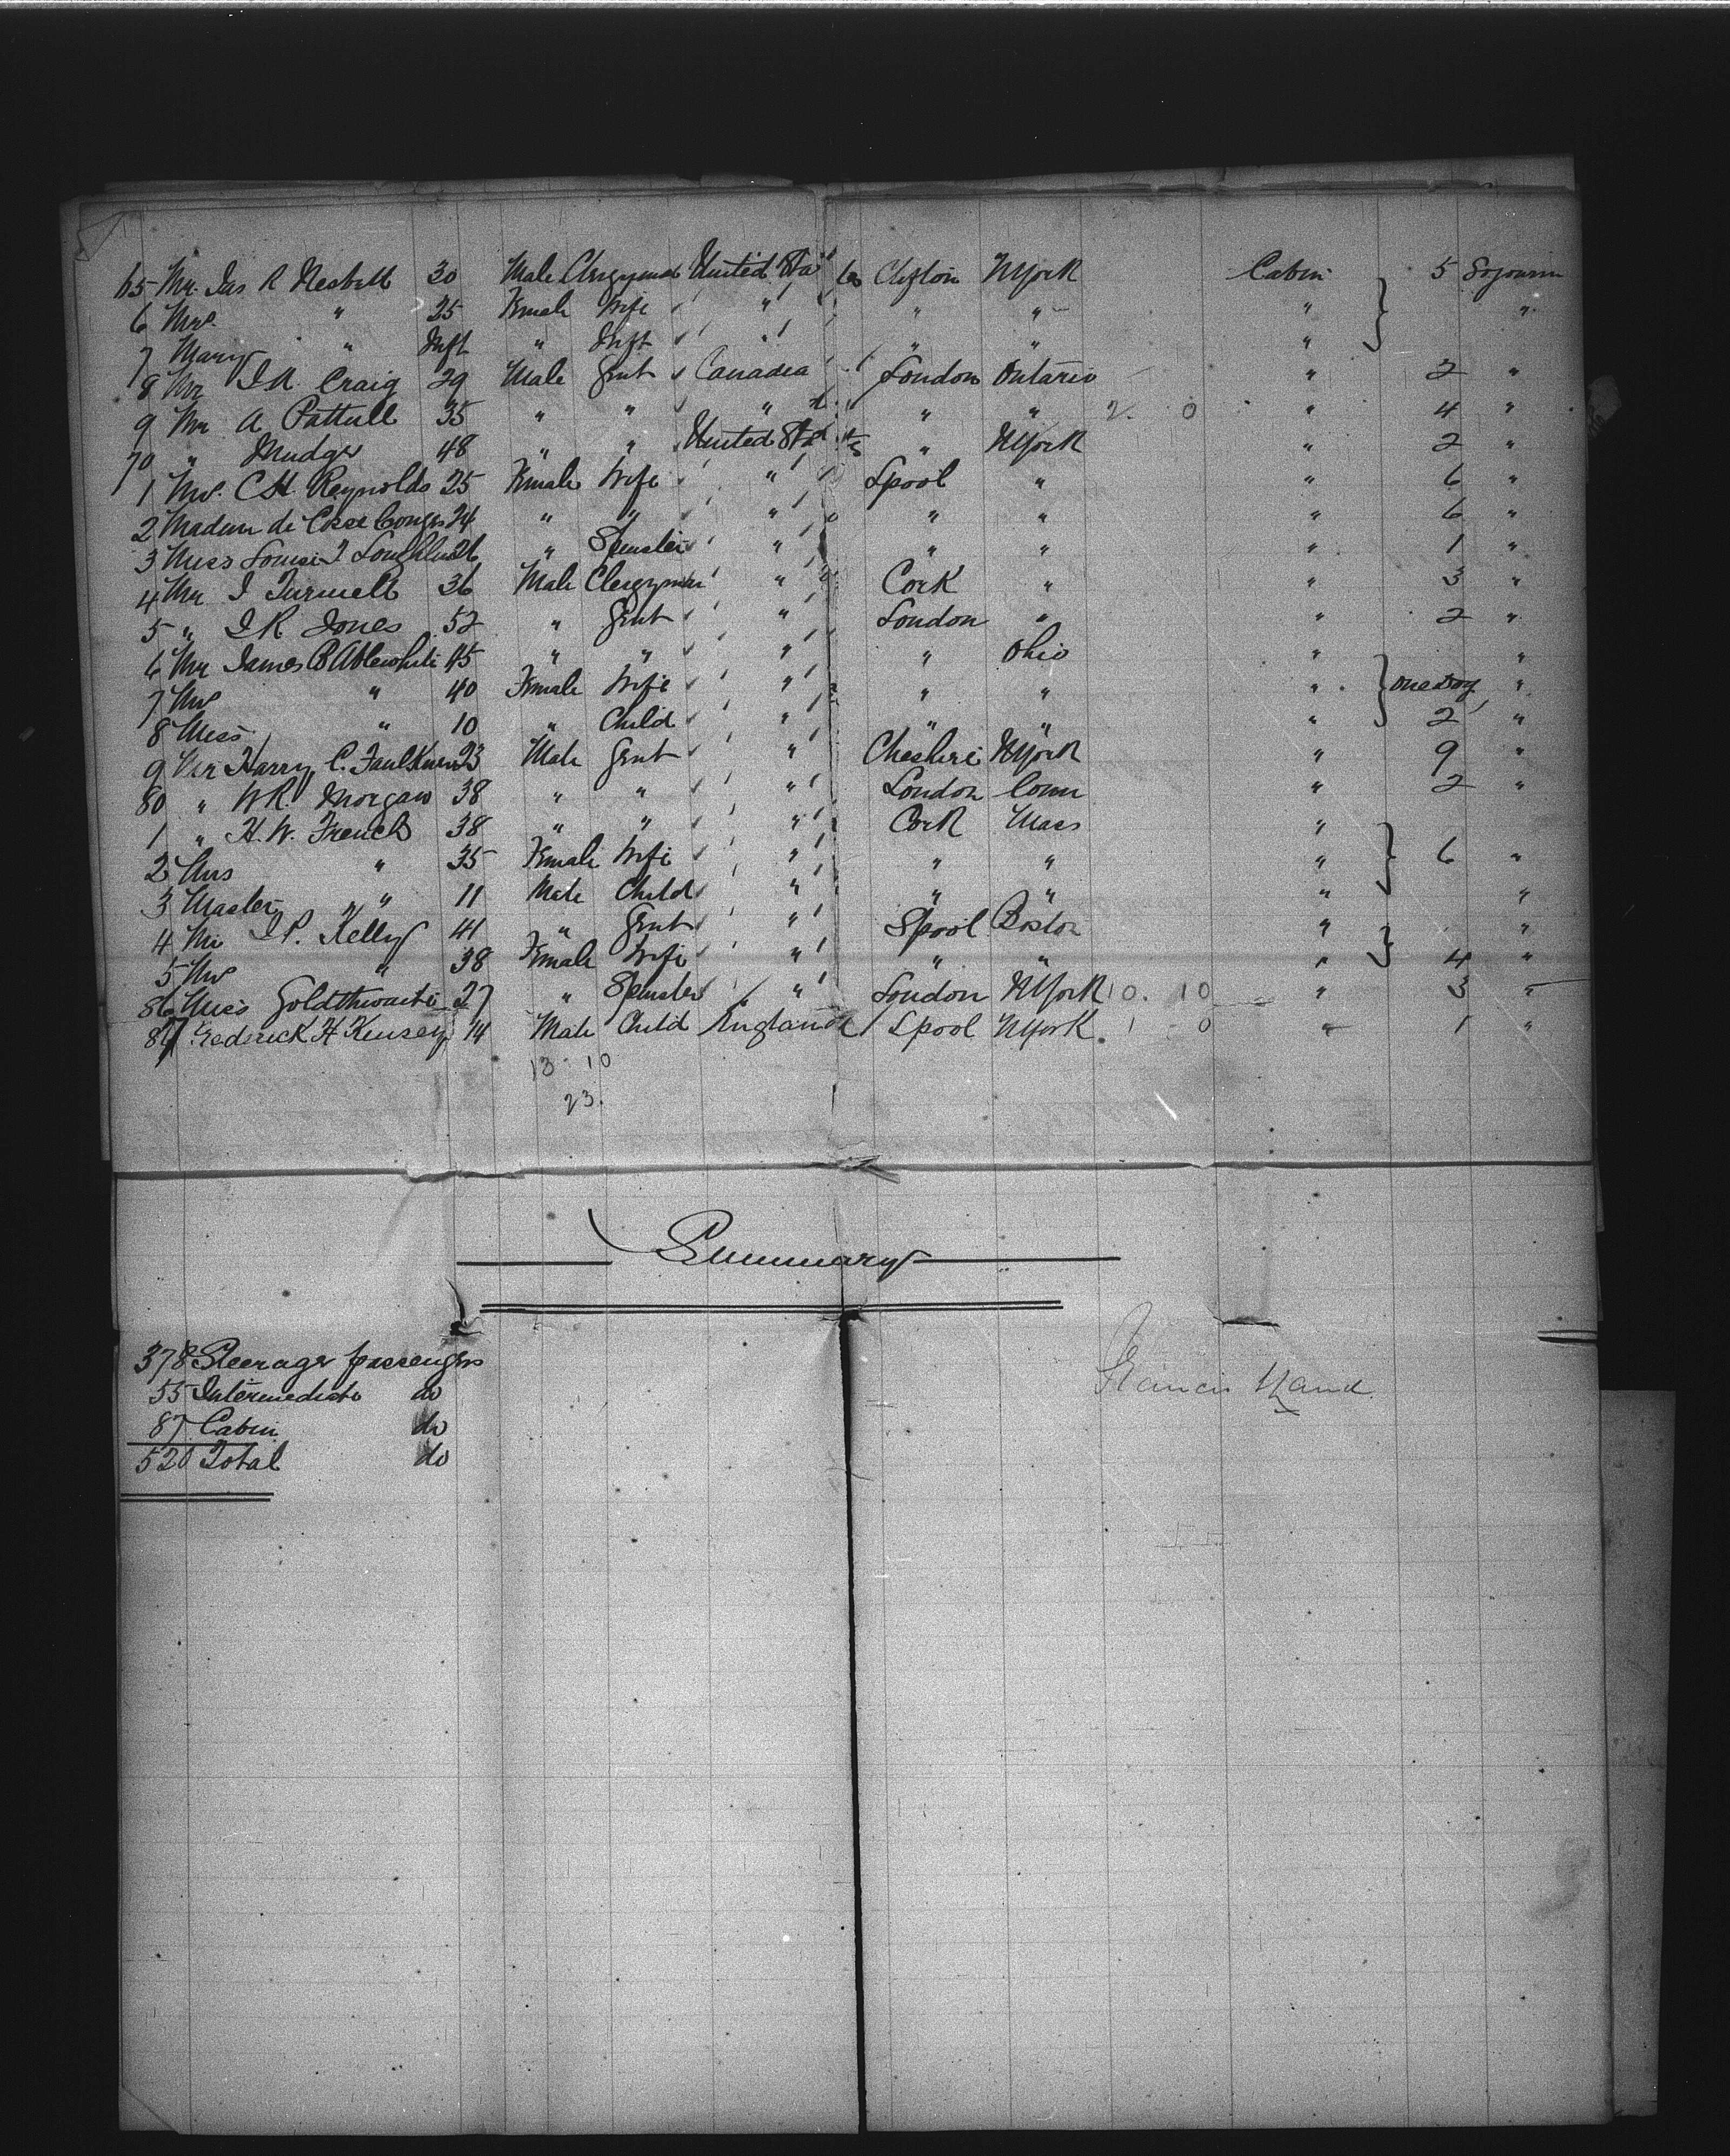 65 Mr. Jas R Nesbitt 30 Male Clergyman United Sta Clifton NYork Cabin 5 Sojourn
6 Mrs. " 25 Female Wife " " " " "
7 Mary " Inft " Inft " " " "
8 Mr J.R. Craig 29 Male Gent Canada London Ontario " 2 "
9 Mr A Pattull 35 " " " " " 2. 0 " 4 "
70 " Mudge 48 " " United Sta " NYork " 2 "
1 Mrs. C.H. Reynolds 25 Female Wife " Lpool " " 6 "
2 Madam de 24 " " " " " " 6 "
3 Miss Louise 26 " Spinster " " " " 1 "
4 Mr J Turnell 36 Male Clergyman " Cork " " 3 "
5 " J R Jones 52 " Gent " London " " 2 "
6 Mr James B Ablewhite 45 " " " " Ohio " "
7 Mrs " 40 Female Wife " " " " One Bag "
8 Miss " 10 " Child " " " " 2 "
9 Mr Harry C. Faulkner 23 Male Gent " Cheshire NYork " 9 "
80 " W R. Morgan 38 " " " London Conn " 2 "
1 " H. W. French 38 " " " Cork Mass "
2 Mrs " 35 Female Wife " " " " 6 "
3 Master " " 11 Male Child " " " " "
4 Mr J P. Kelly 41 " Gent " Lpool Boston " "
5 Mrs " 38 Female Wife " " " " 4 "
86 Miss Goldthwaite 27 " Spinster " London NYork 10. 10 " 3 "
87 Frederick H Kinsey 14 Male Child England Lpool NYork. 1 - 0 " 1 "
13 10
23.
Summary
378 Steerage passengers
55 Intermediate do
87 Cabin do
520 Total do
Francis Hand